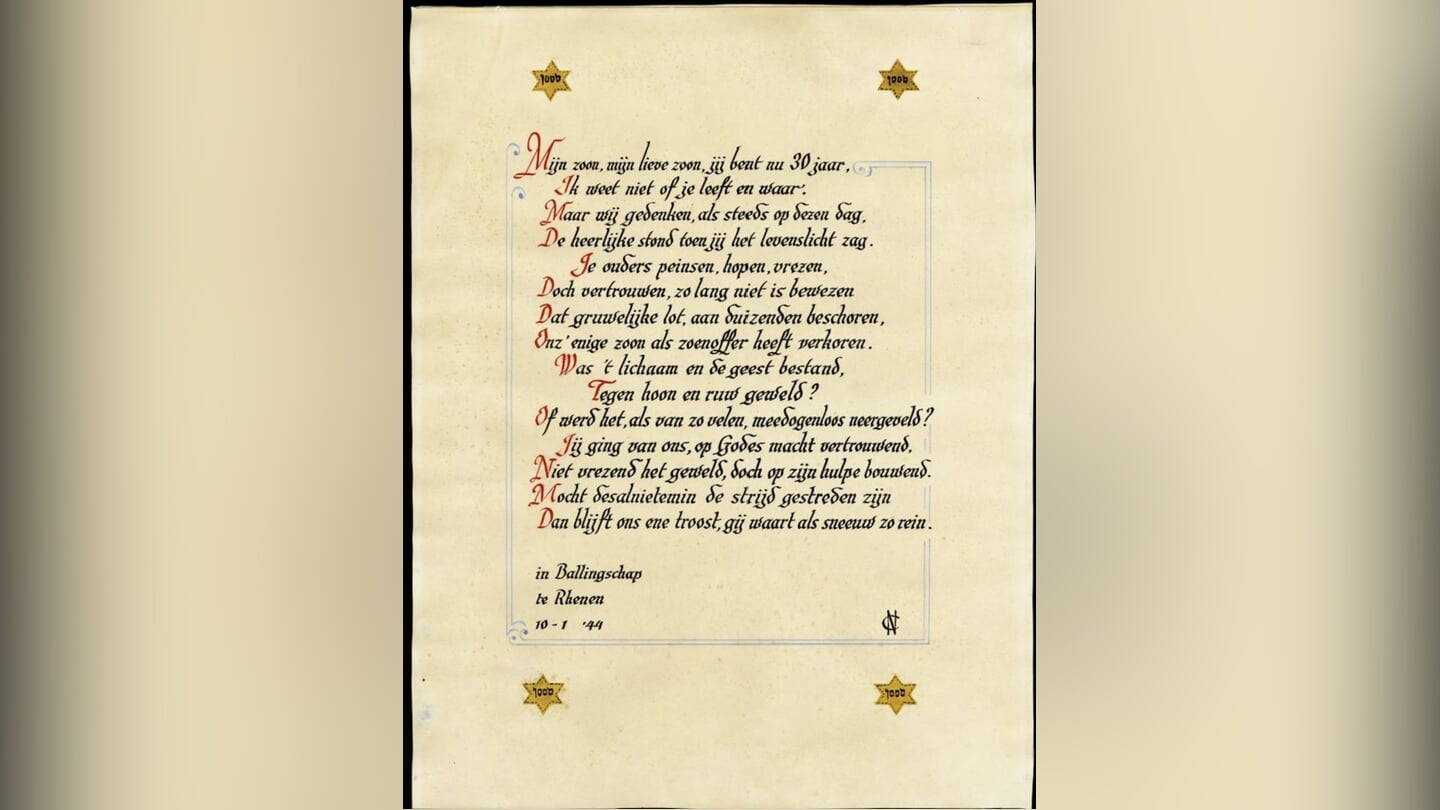 Mijn zoon, mijn lieve zoon, jij bent nu 30 jaar,
Ik weet niet of je leeft en waar.
Maar wij gedenken, als steeds op dezen dag,
De heerlijke stond toen jij het levenslicht zag.
Je ouders peinsen, hopen, vrezen,
Doch vertrouwen, zo lang niet is bewezen
Dat gruwelijke lot, aan duizenden beschoren,
Onz' enige zoon als zoenoffer heeft verkoren.
Was 't lichaam en de geest bestand,
Tegen hoon en ruw geweld?
Of werd het, als van zo velen, meedogenloos neergeveld?
Jij ging van ons, op Godes macht vertrouwend.
Niet vrezend het geweld, doch op zijn hulpe bouwend.
Mocht desalnietemin de strijd gestreden zijn
Dan blijft ons ene troost, gij waart als sneeuw zo rein.
in Ballingschap
te Rhenen
10-1 '44